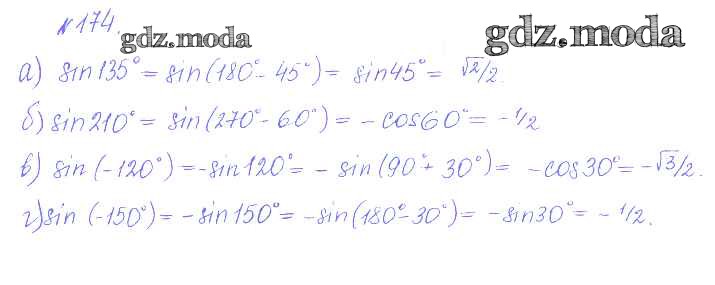 №174.
gdz.moda
gdz.moda
а) sin135°= sin(180°- 45°)= sin45°= √2/2.
б) sin210°= sin(270°- 60°)= - cos60°= -1/2
в) sin(-120°)=-sin120°= - sin(90°+ 30°)= -cos30°= -√3/2.
г) sin(-150°)= - sin150°= -sin(180°-30°)= -sin30°= - 1/2.